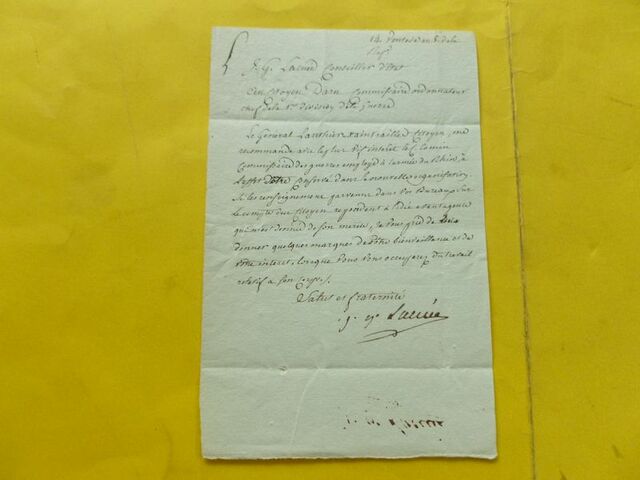 14 Ventose an 8 de la
Rep.
J. G. Lacuée Conseiller d'Etat
Au Citoyen Daru Commissaire ordonnateur
chef de la 1re division de la Guerre
Le Général Xaintrailles Citoyen, me
recommande avec le plus vif interêt le C.
Commissaire des guerres employé à l'armée du Rhin, à
l'effet d'être conservé dans la nouvelle organisation
Si les renseignements parvenus dans vos Bureaux sur
le compte du Citoyen repondent à l'idée avantageuse
qu'on m'a donné de son merite, je vous prie de lui
donner quelques marques de votre bienveillance et de
votre interet, lorsque vous vous occuperez du travail
relatif a son Corps.
Salut et fraternité
J. G. Lacuée